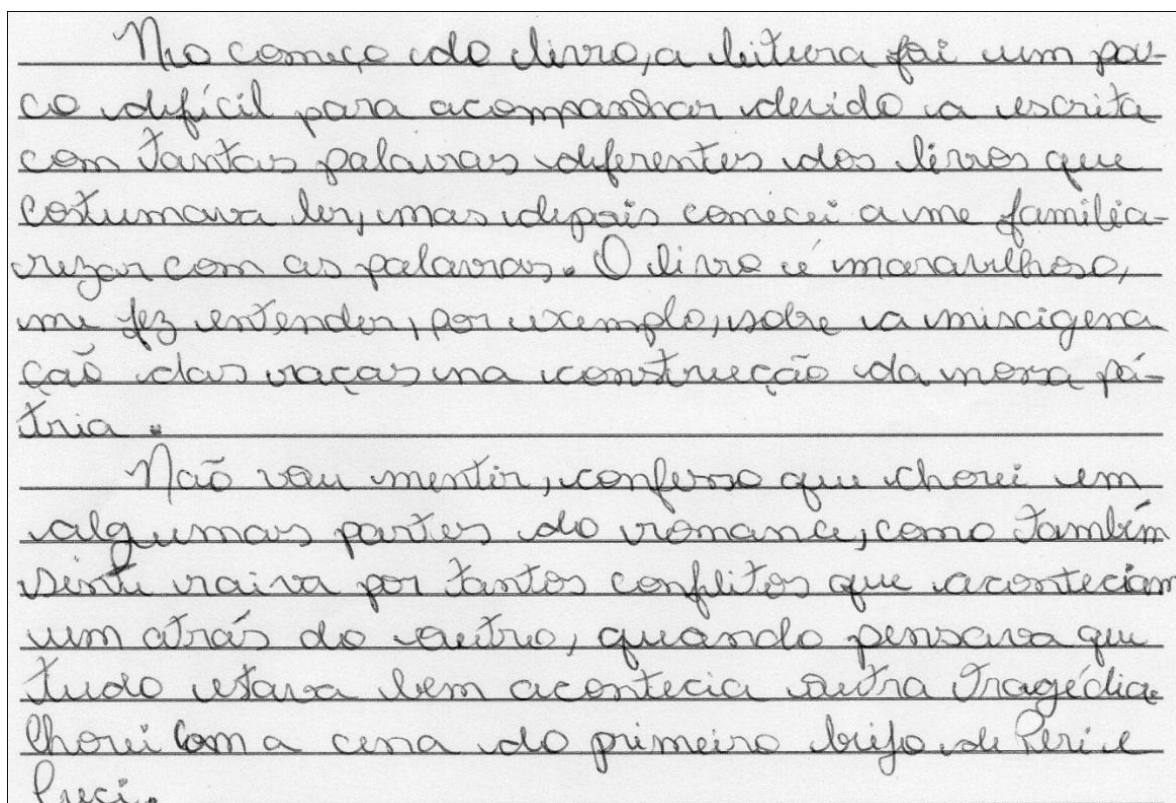 No começo do livro, a leitura foi um pou-
co difícil para acompanhar devido a escrita
com tantas palavras diferentes dos livros que
costumava ler, mas depois comecei a me familia-
rizar com as palavras. O livro é maravilhoso,
me fez entender, por exemplo, sobre a miscigena
ção das raças na construção da nossa pá-
tria.
Não vou mentir, confesso que chorei em
algumas partes do romance, como também
senti raiva por tantos conflitos que aconteciam
um atrás do outro, quando pensava que
tudo estava bem acontecia outra tragédia.
Chorei com a cena do primeiro beijo de Peri e
Ceci.